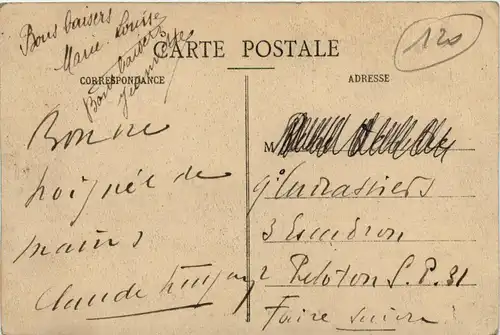 Bons baisers
Marie Louise
Bons baisers
CARTE POSTALE
120
CORRESPONDANCE
ADRESSE
Bonne
poignée de
mains
Claude
M
9e Cuirassiers
3 Escadron
Peloton S.P. 31
Faire suivre